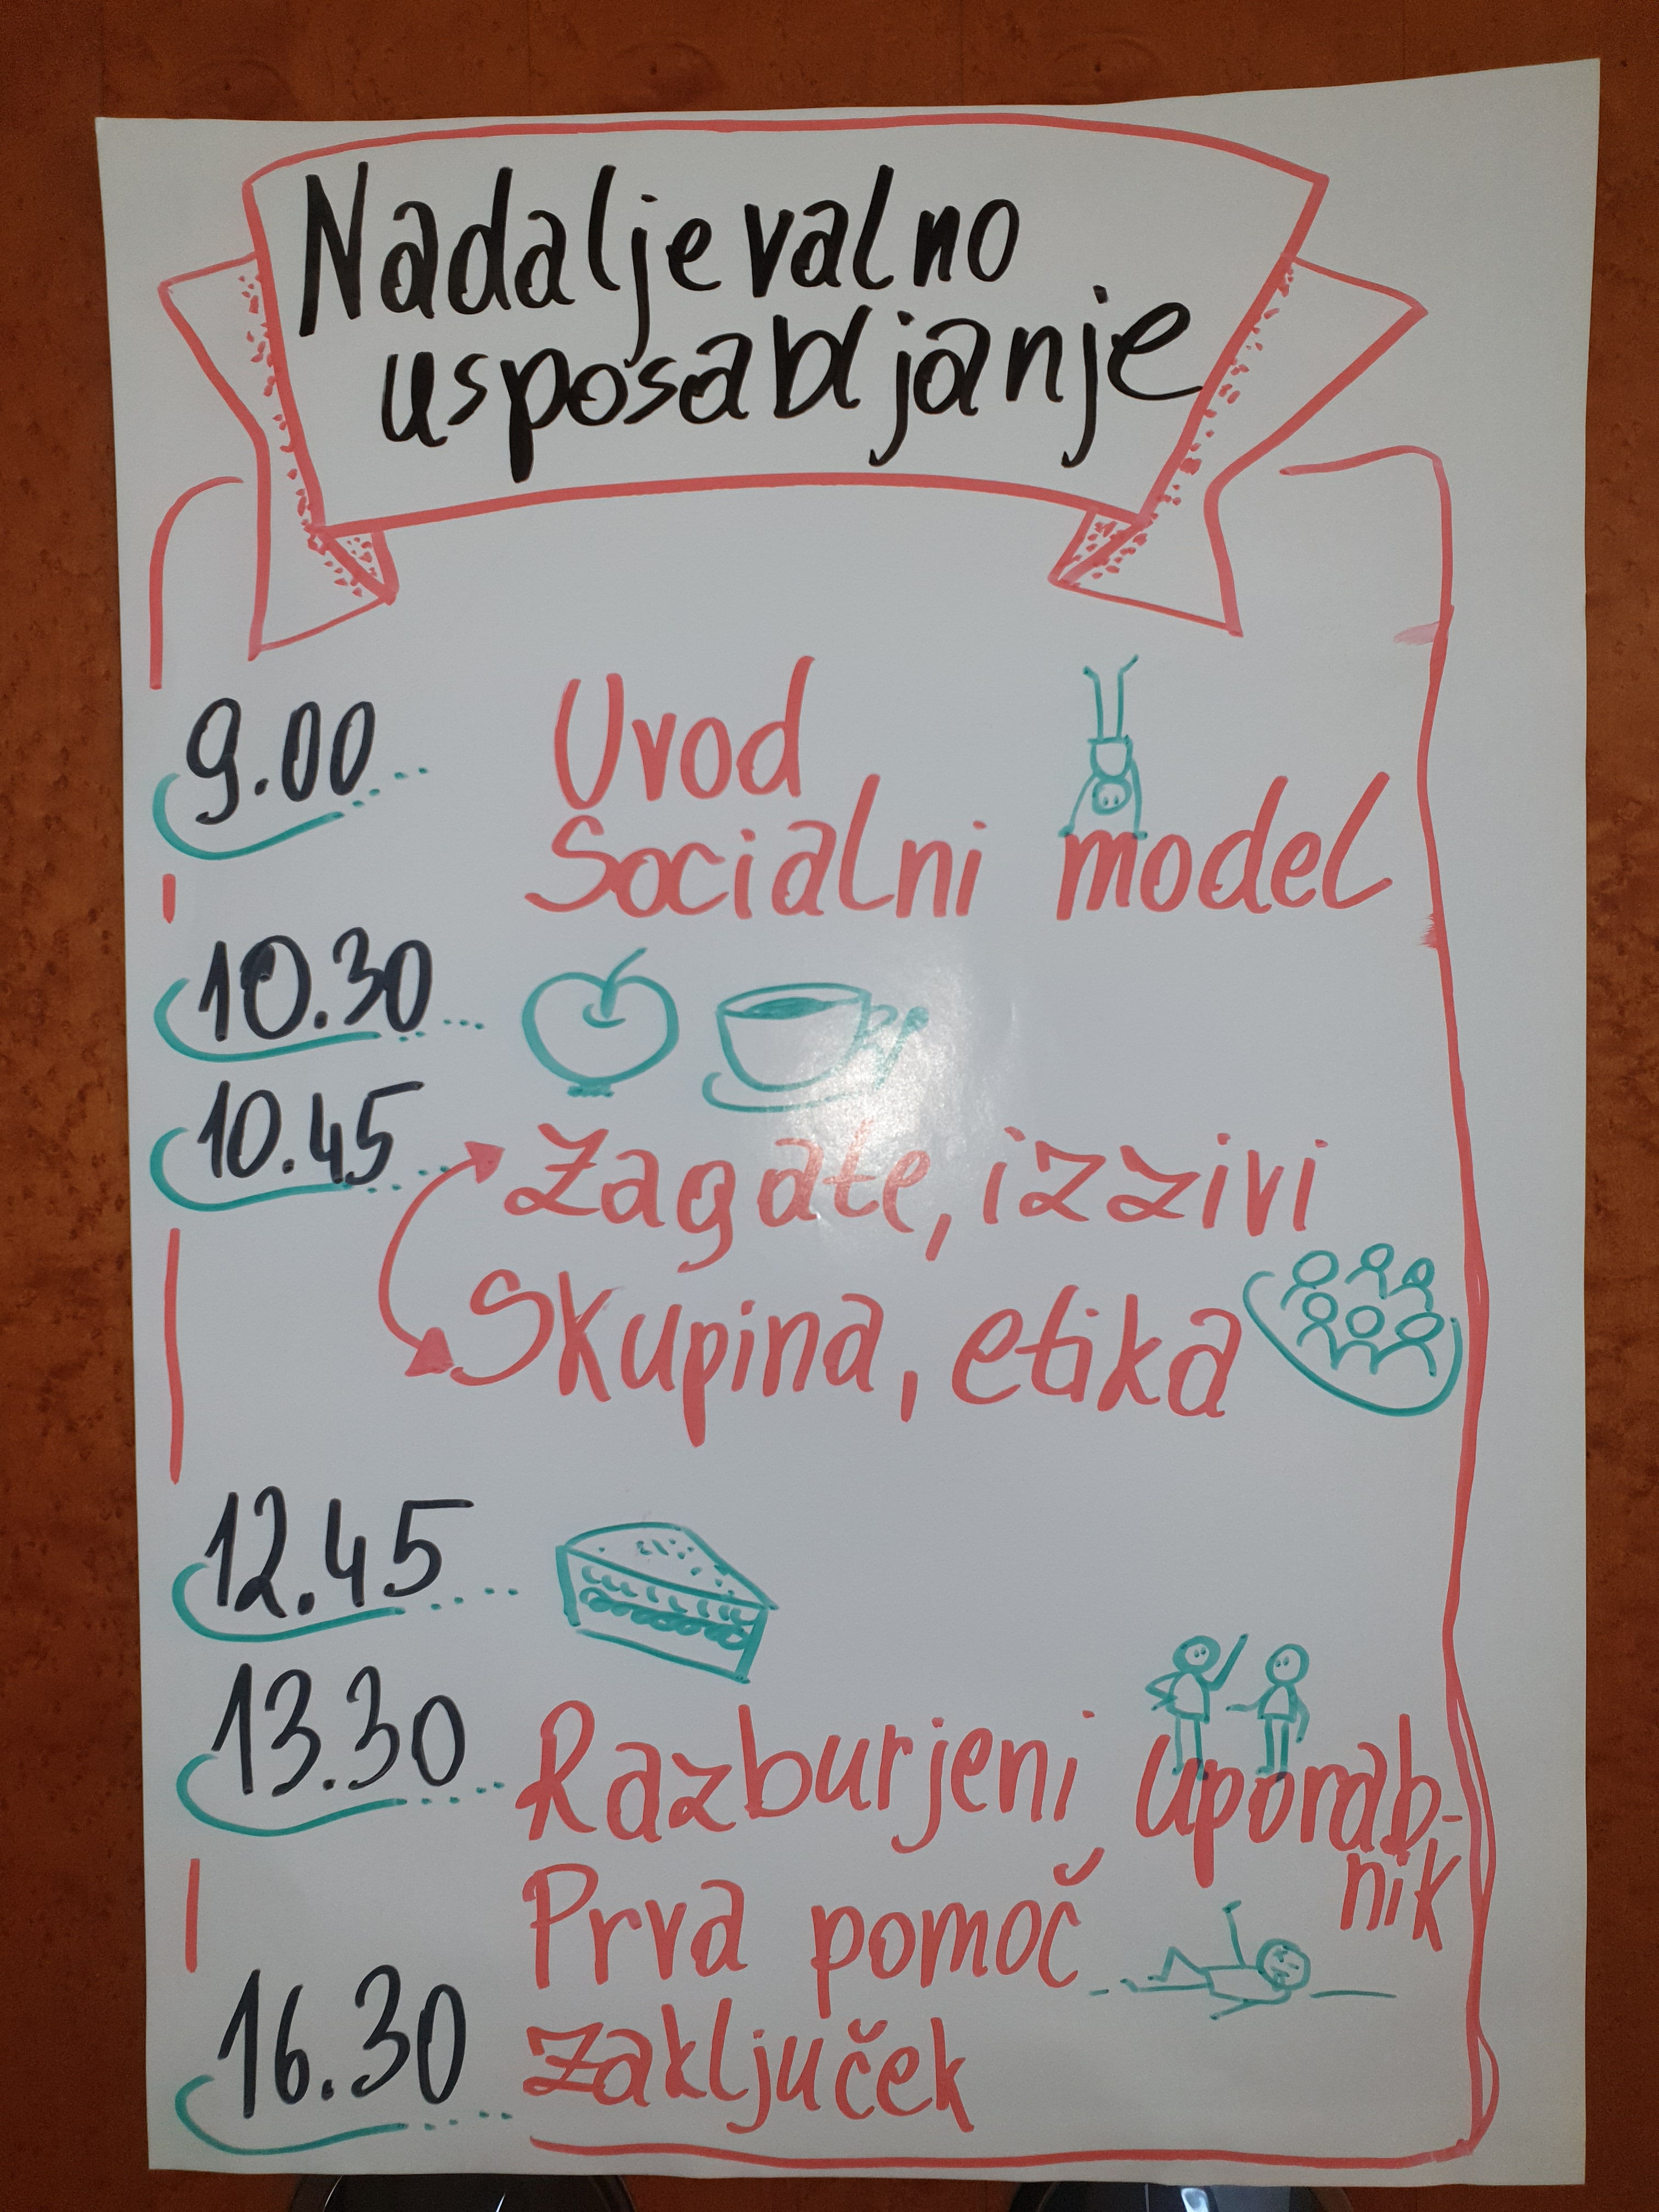 Nadaljevalno
usposabljanje
9.00 Uvod
Socialni model
10.30
10.45 Zagate, izzivi
Skupina, etika
12.45
13.30 Razburjeni uporab-
nik
Prva pomoč
16.30 zaključek